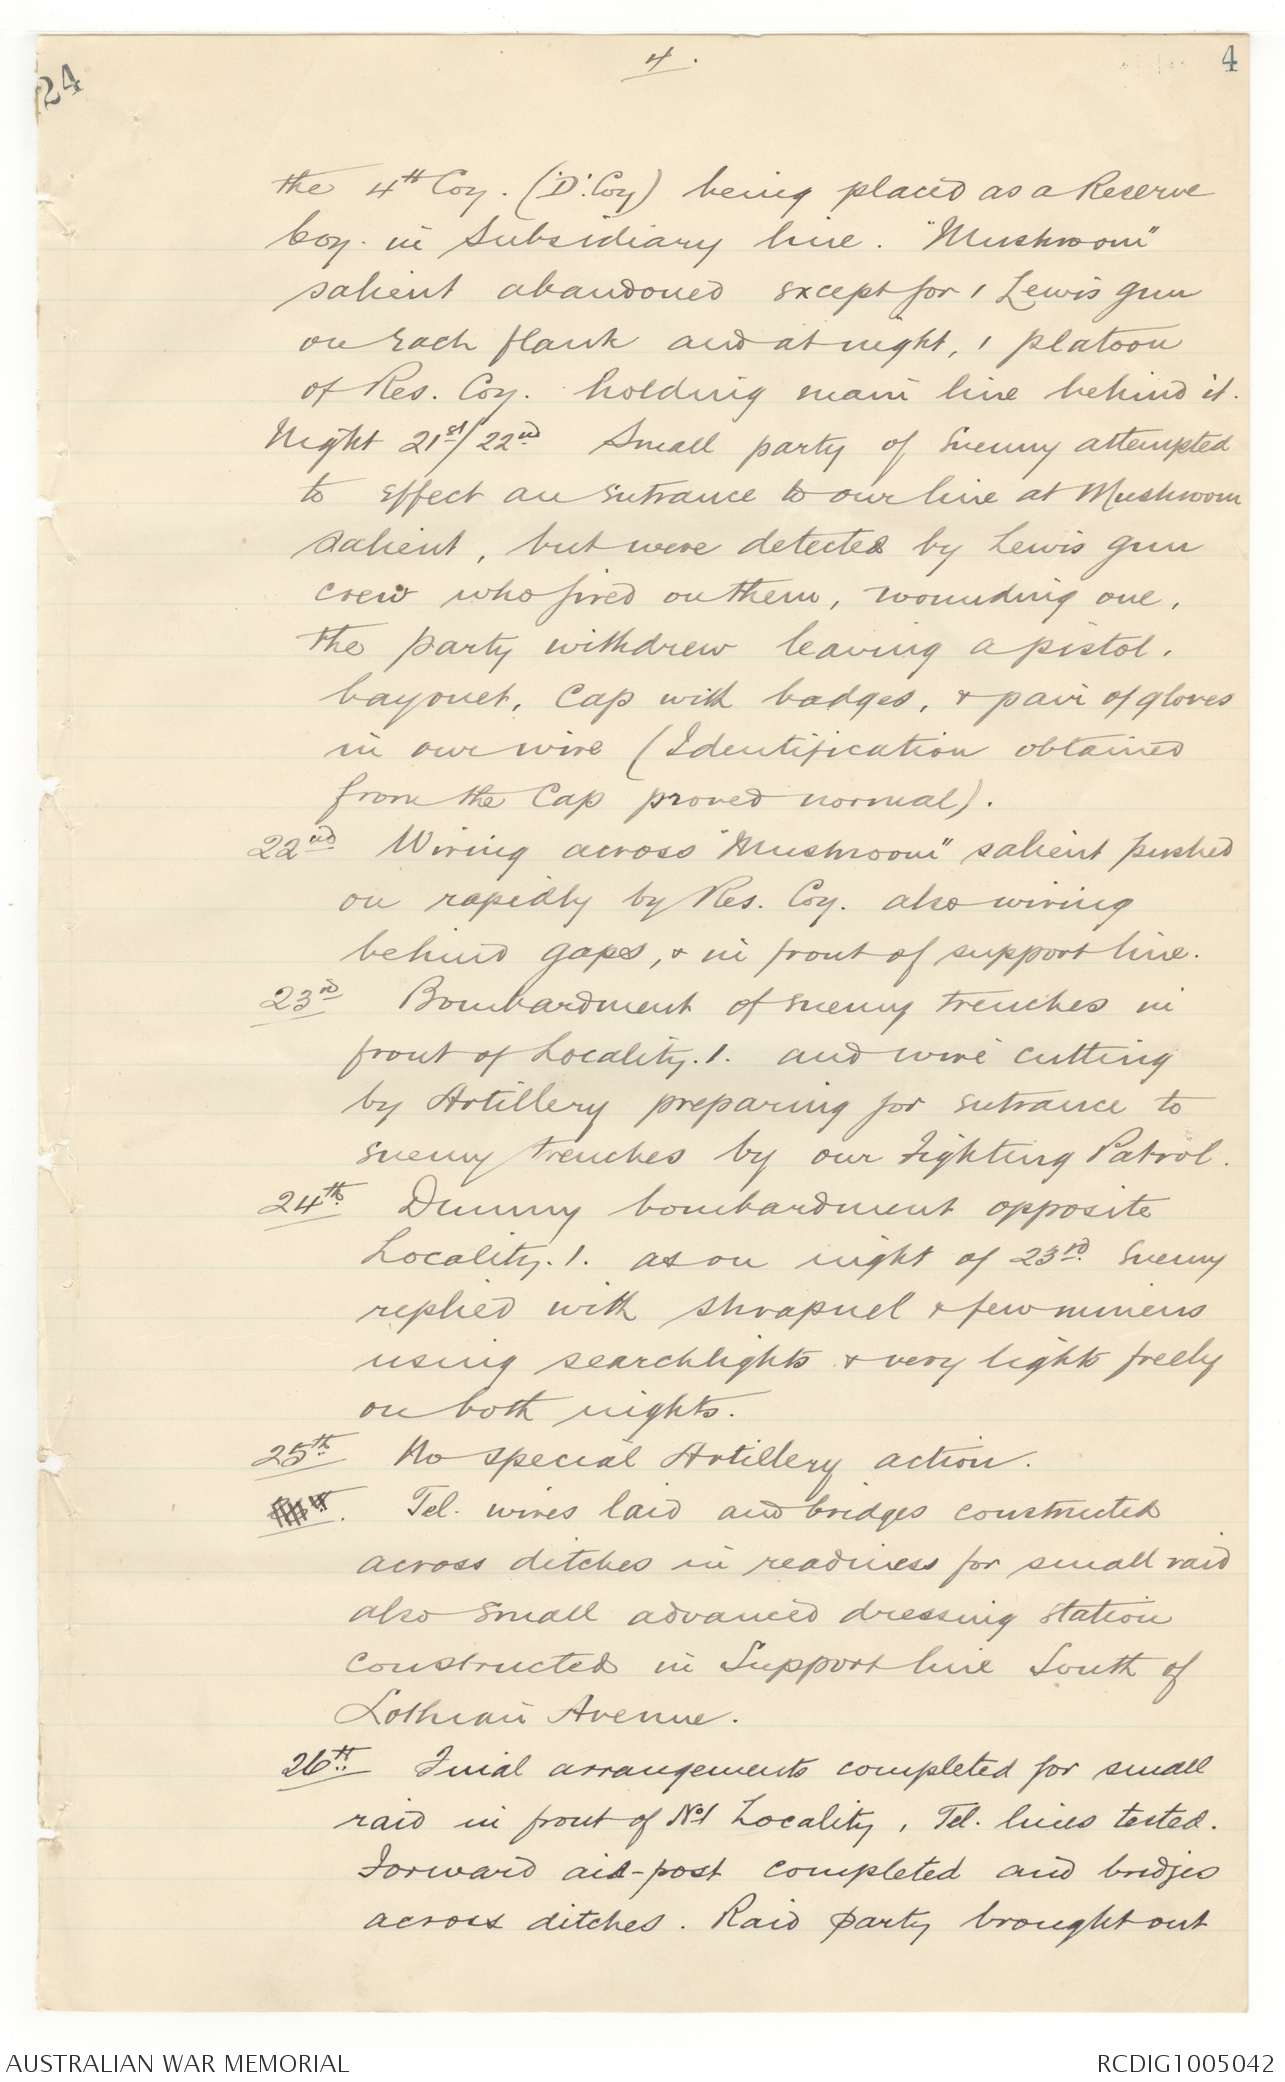 4.
4
24
the 4th Coy. ('D' Coy) being placed as a Reserve
Coy. in Subsidiary line. "Mushroom"
salient abandoned except for 1 Lewis gun
on each flank and at night, 1 platoon
of Res. Coy. holding main line behind it.
Night 21st/22nd Small party of Enemy attempted
to effect an entrance to our line at Mushroom
Salient, but were detected by Lewis gun
crew who fired on them, wounding one,
the party withdrew leaving a pistol,
bayonet, Cap with badges, & pair of gloves
in our wire (Identification obtained
from the Cap proved normal).
22nd Wiring across "Mushroom" salient pushed
on rapidly by Res. Coy. also wiring
behind gaps, & in front of support line.
23rd Bombardment of enemy trenches in
front of Locality.1. and wire cutting
by Artillery preparing for entrance to
enemy trenches by our Fighting Patrol.
24th Dummy bombardment opposite
Locality.1. as on night of 23rd. Enemy
replied with shrapnel & few minens
using searchlights & very lights freely
on both nights.
25th No special Artillery action.
Tel. wires laid and bridges constructed
across ditches in readiness for small raid
also small advanced dressing station
constructed in Support line South of
Lothian Avenue.
26th Final arrangements completed for small
raid in front of No1 Locality, Tel. lines tested.
Forward aid-post completed and bridges
across ditches. Raid party brought out
AUSTRALIAN WAR MEMORIAL
RCDIG1005042